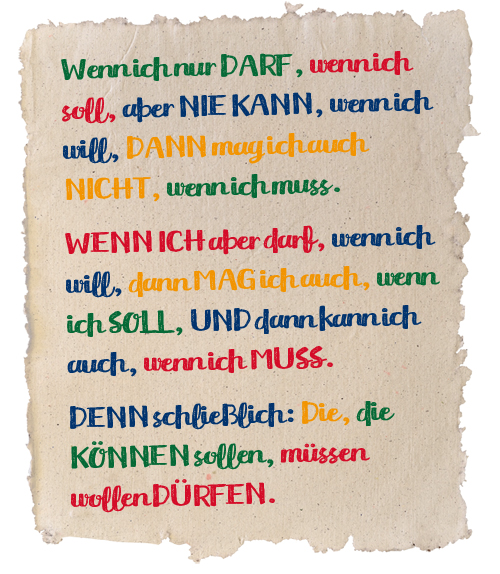 Wenn ich nur DARF, wenn ich
soll, aber NIE KANN, wenn ich
will, DANN mag ich auch
NICHT, wenn ich muss.
WENN ICH aber darf, wenn ich
will, dann MAG ich auch, wenn
ich SOLL, UND dann kann ich
auch, wenn ich MUSS.
DENN schließlich: Die, die
KÖNNEN sollen, müssen
wollen DÜRFEN.